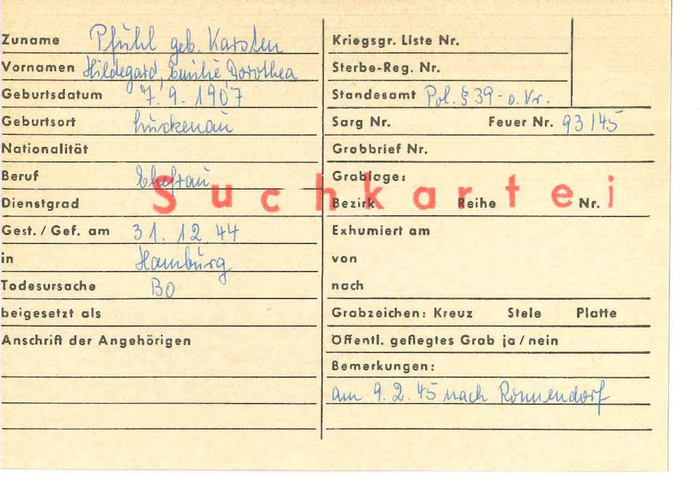 Zuname Pfühl geb. Karsten
Vornamen Hildegard, Emilie, Dorothea
Geburtsdatum 7. 9. 1907
Geburtsort Luckenau
Nationalität
Beruf Ehefrau
Dienstgrad
Gest. / Gef. am 31. 12. 44
in Hamburg
Todesursache BO
beigesetzt als
Anschrift der Angehörigen
Suchkartei
Kriegsgr. Liste Nr.
Sterbe-Reg. Nr.
Standesamt Pol. § 39 - o. Vr.
Sarg Nr. Feuer Nr. 93145
Grabbrief Nr.
Grablage:
Bezirk Reihe Nr.
Exhumiert am
von
nach
Grabzeichen: Kreuz Stele Platte
Öffentl. gepflegtes Grab ja / nein
Bemerkungen:
am 9. 2. 45 nach Ronnendorf